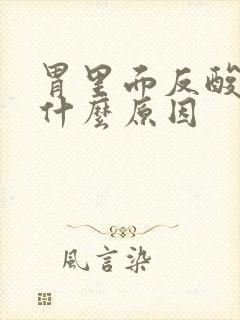 胃里而反酸
什麼原因
風言染